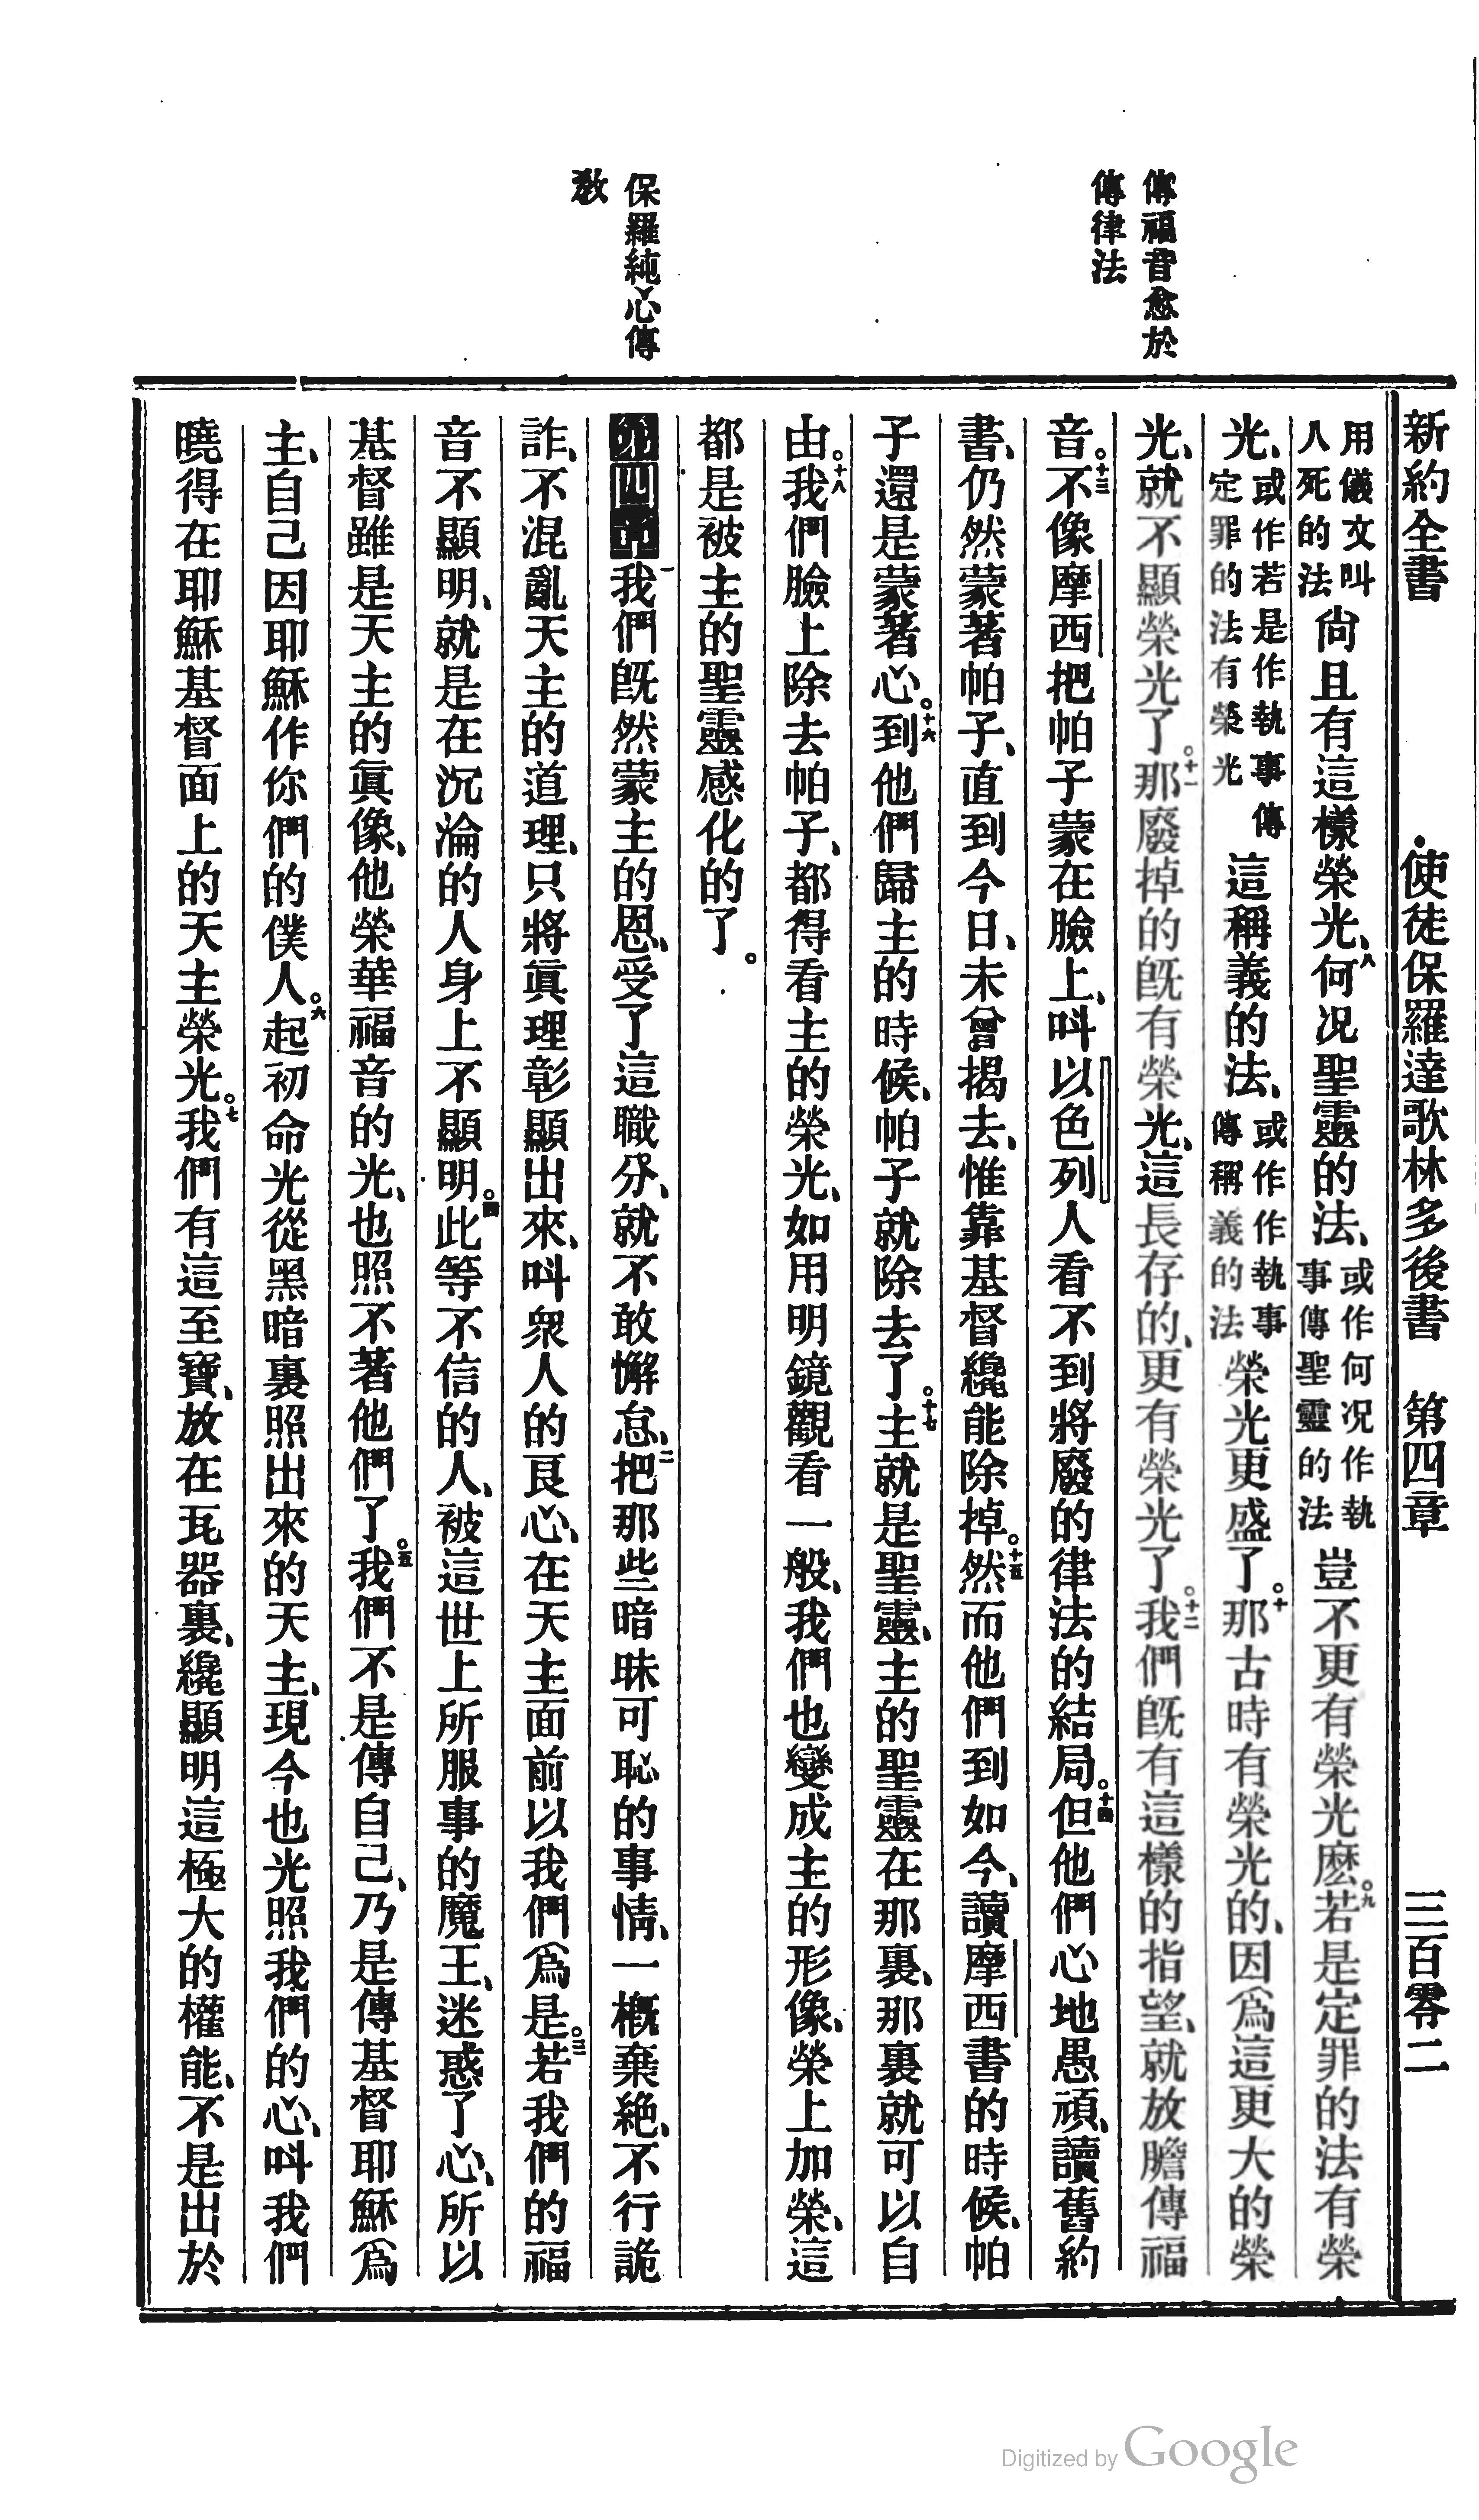 新約全書　使徒保羅達歌林多後書　第四章　三百零二
傳福音愈於
傳律法
保羅純心傳
敎
用儀文叫
人死的法
尙且有這樣榮光、八何况聖靈的法、
或作何况作執
事傳聖靈的法
豈不更有榮光麽。九若是定罪的法有榮
光、
或作若是作執事傳
定罪的法有榮光
這稱義的法、
或作作執事
傳稱義的法
榮光更盛了。十那古時有榮光的、因爲這更大的榮
光、就不顯榮光了。十一那廢掉的旣有榮光、這長存的、更有榮光了。十二我們旣有這樣的指望、就放膽傳福
音。十三不像摩西把帕子蒙在臉上、呌以色列人看不到將廢的律法的結局。十四但他們心地愚頑、讀舊約
書、仍然蒙著帕子、直到今日、未曾揭去、惟靠基督纔能除掉。十五然而他們到如今、讀摩西書的時候、帕
子還是蒙著心。十六到他們歸主的時候、帕子就除去了。十七主就是聖靈、主的聖靈在那裏、那裏就可以自
由。十八我們臉上除去帕子、都得看主的榮光、如用明鏡觀看一般、我們也變成主的形像、榮上加榮、這
都是被主的聖靈感化的了。
第四章一我們旣然蒙主的恩、受了這職分、就不敢懈怠、二把那些暗昧可恥的事情、一槪棄絕、不行詭
詐、不混亂天主的道理、只將眞理彰顯出來、呌衆人的良心、在天主面前以我們爲是。三若我們的福
音不顯明、就是在沉淪的人身上不顯明。四此等不信的人、被這世上所服事的魔王、迷惑了心、所以
基督雖是天主的眞像、他榮華福音的光、也照不著他們了。五我們不是傳自己、乃是傳基督耶穌爲
主、自己因耶穌作你們的僕人。六起初命光從黑暗裏照出來的天主、現今也光照我們的心、呌我們
曉得在耶穌基督面上的天主榮光。七我們有這至寶、放在瓦器裏、纔顯明這極大的權能、不是出於
Digitized by Google